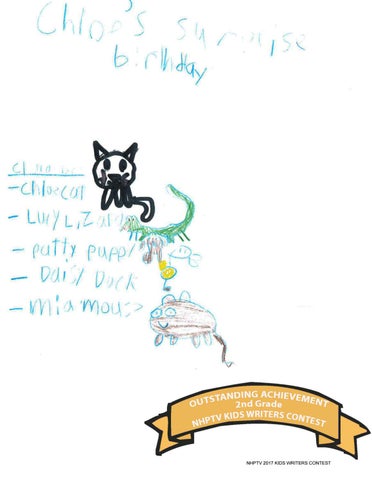 Chloe's surprise
birthday
- chloe cat
- Lucy Lizard
- patty puppy
- Daisy Duck
- mia mouse
OUTSTANDING ACHIEVEMENT
2nd Grade
NHPTV KIDS WRITERS CONTEST
NHPTV 2017 KIDS WRITERS CONTEST